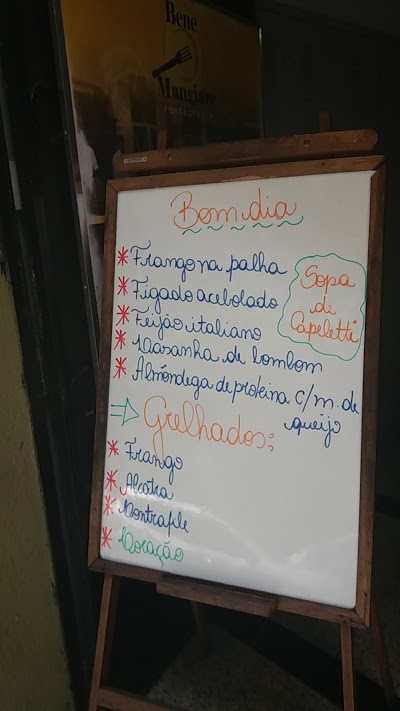 Bene
Mangiare
Bom dia
* Frango na palha
* Figado acebolado
* Feijão italiano
* Lasanha de bombom
* Almôndega de proteina c/m. de
queijo
Sopa
de
Capeletti
⇒ Grelhados:
* Frango
* Alcatra
* Contrafile
* Coração